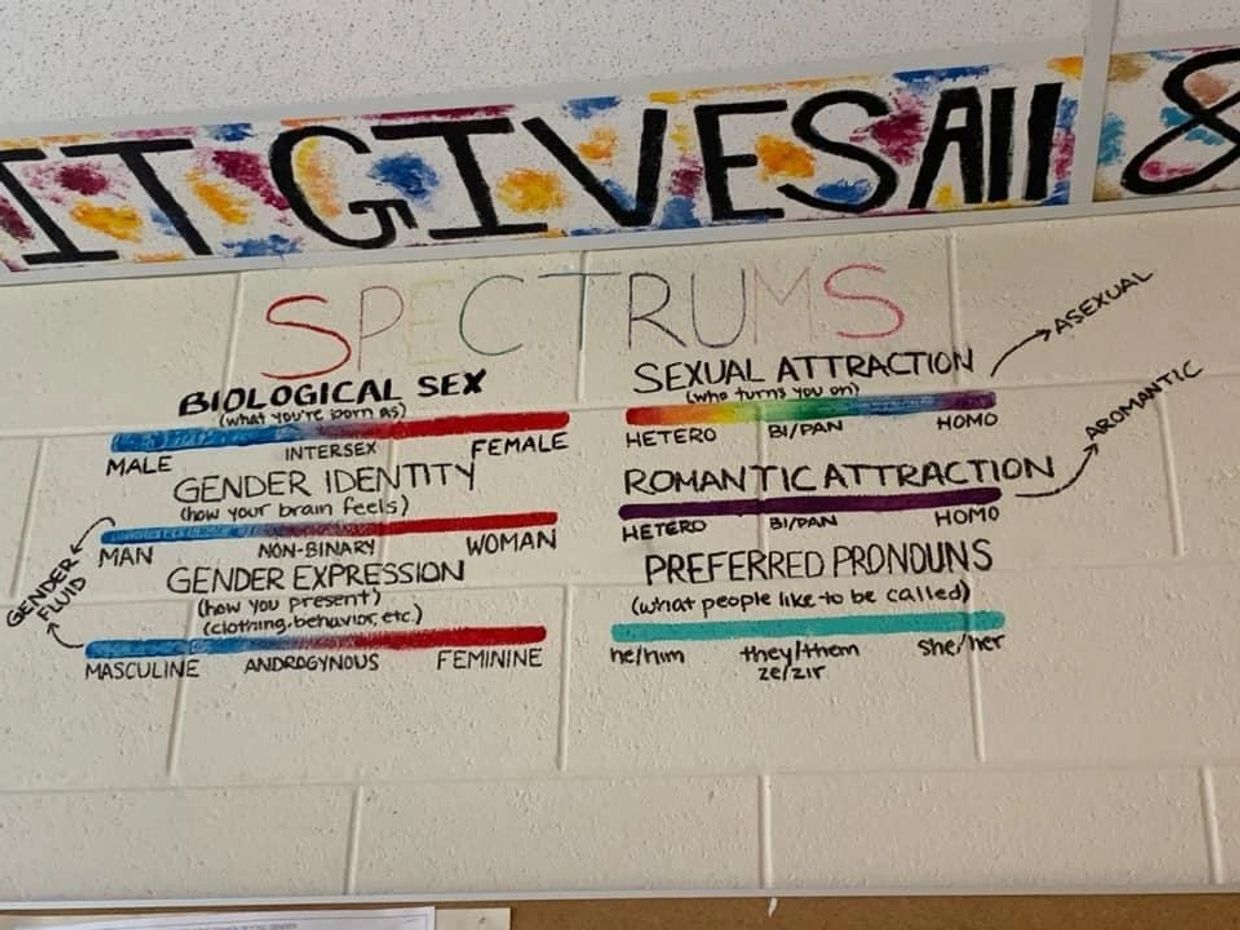 IT GIVES All &
SPECTRUMS
BIOLOGICAL SEX
(what you're born as)
MALE INTERSEX FEMALE
GENDER IDENTITY
(how your brain feels)
MAN NON-BINARY WOMAN
GENDER EXPRESSION
(how you present)
(clothing, behavior, etc.)
MASCULINE ANDROGYNOUS FEMININE
GENDER
FLUID
SEXUAL ATTRACTION
(who turns you on)
HETERO BI/PAN HOMO
ASEXUAL
ROMANTIC ATTRACTION
HETERO BI/PAN HOMO
AROMANTIC
PREFERRED PRONOUNS
(what people like to be called)
he/him they/them she/her
ze/zir